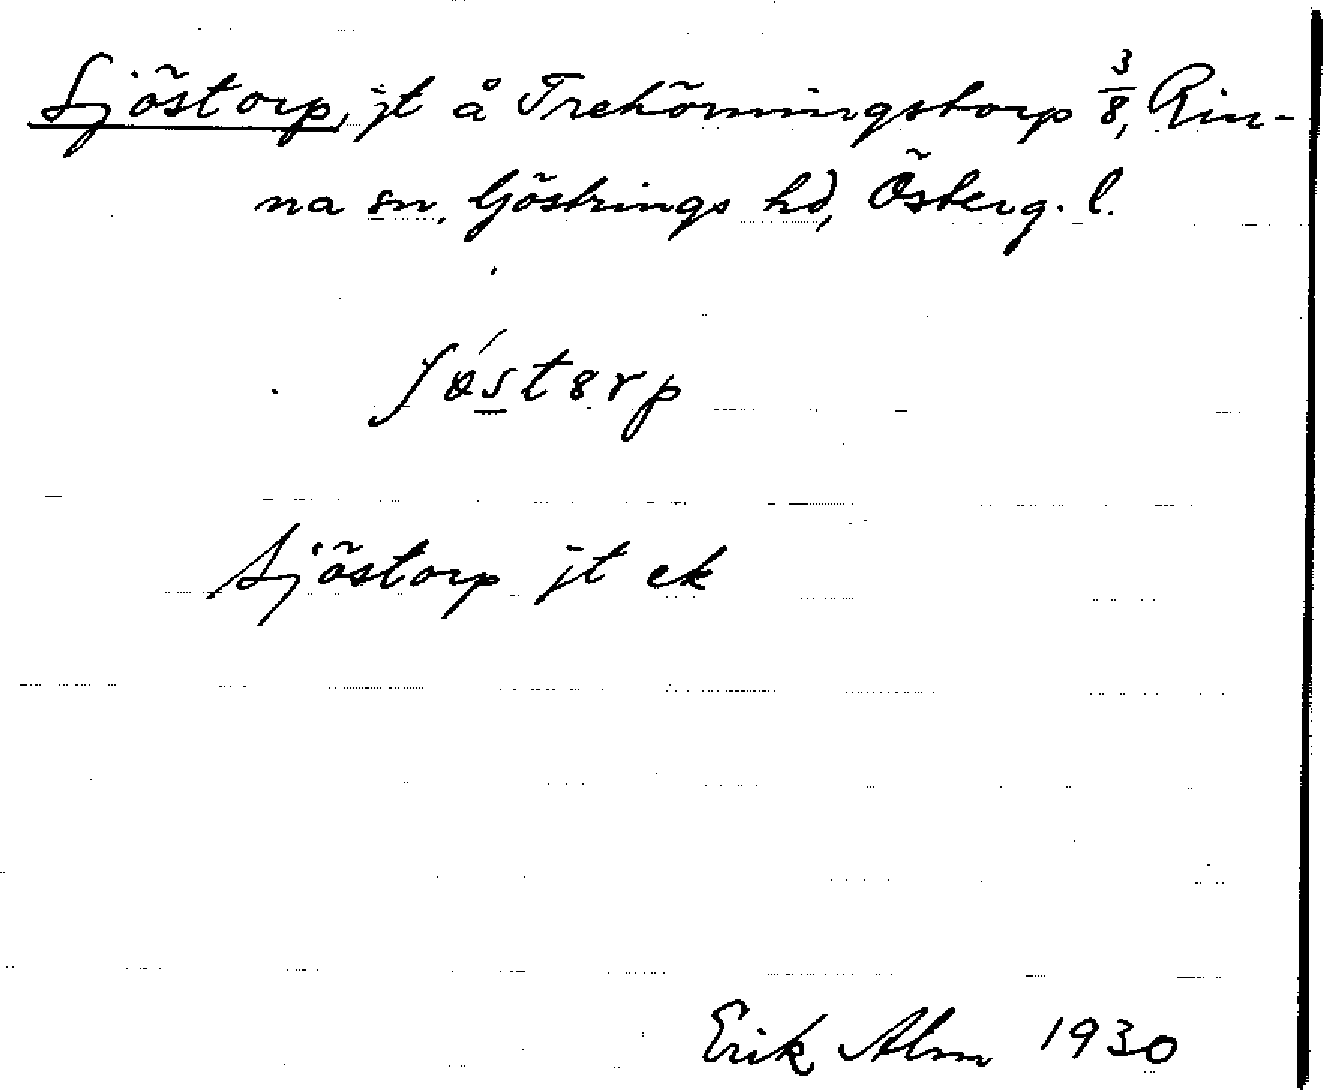 Sjöstorp, jt å Trehörningstorp 3/8, Rin-
na sn, Göstrings hd, Österg. l.
Sjöstorp jt ek
Erik Alm 1930